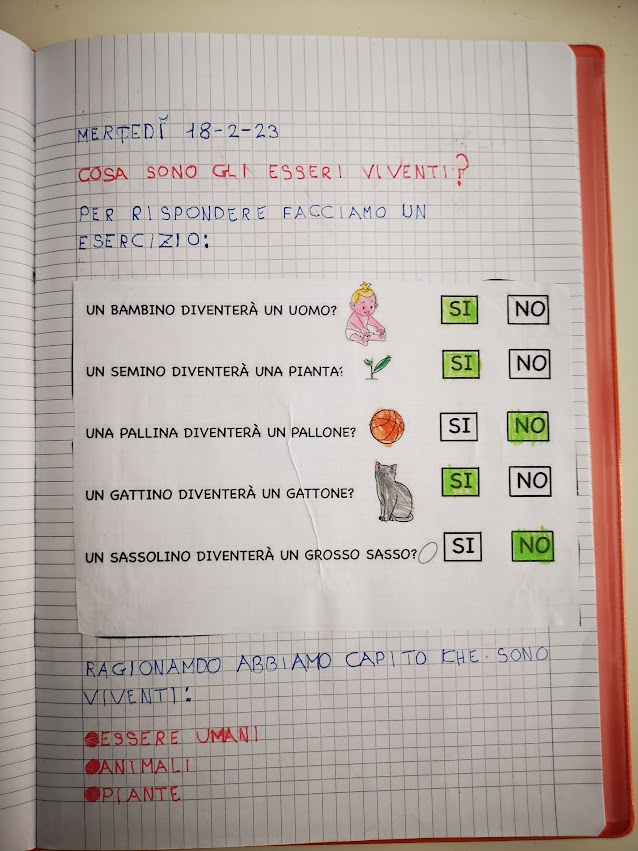 MERTEDÌ 18-2-23
COSA SONO GLI ESSERI VIVENTI?
PER RISPONDERE FACCIAMO UN
ESERCIZIO:
UN BAMBINO DIVENTERÀ UN UOMO? SI NO
UN SEMINO DIVENTERÀ UNA PIANTA? SI NO
UNA PALLINA DIVENTERÀ UN PALLONE? SI NO
UN GATTINO DIVENTERÀ UN GATTONE? SI NO
UN SASSOLINO DIVENTERÀ UN GROSSO SASSO? SI NO
RAGIONAMDO ABBIAMO CAPITO KHE SONO
VIVENTI:
ESSERE UMANI
ANIMALI
PIANTE